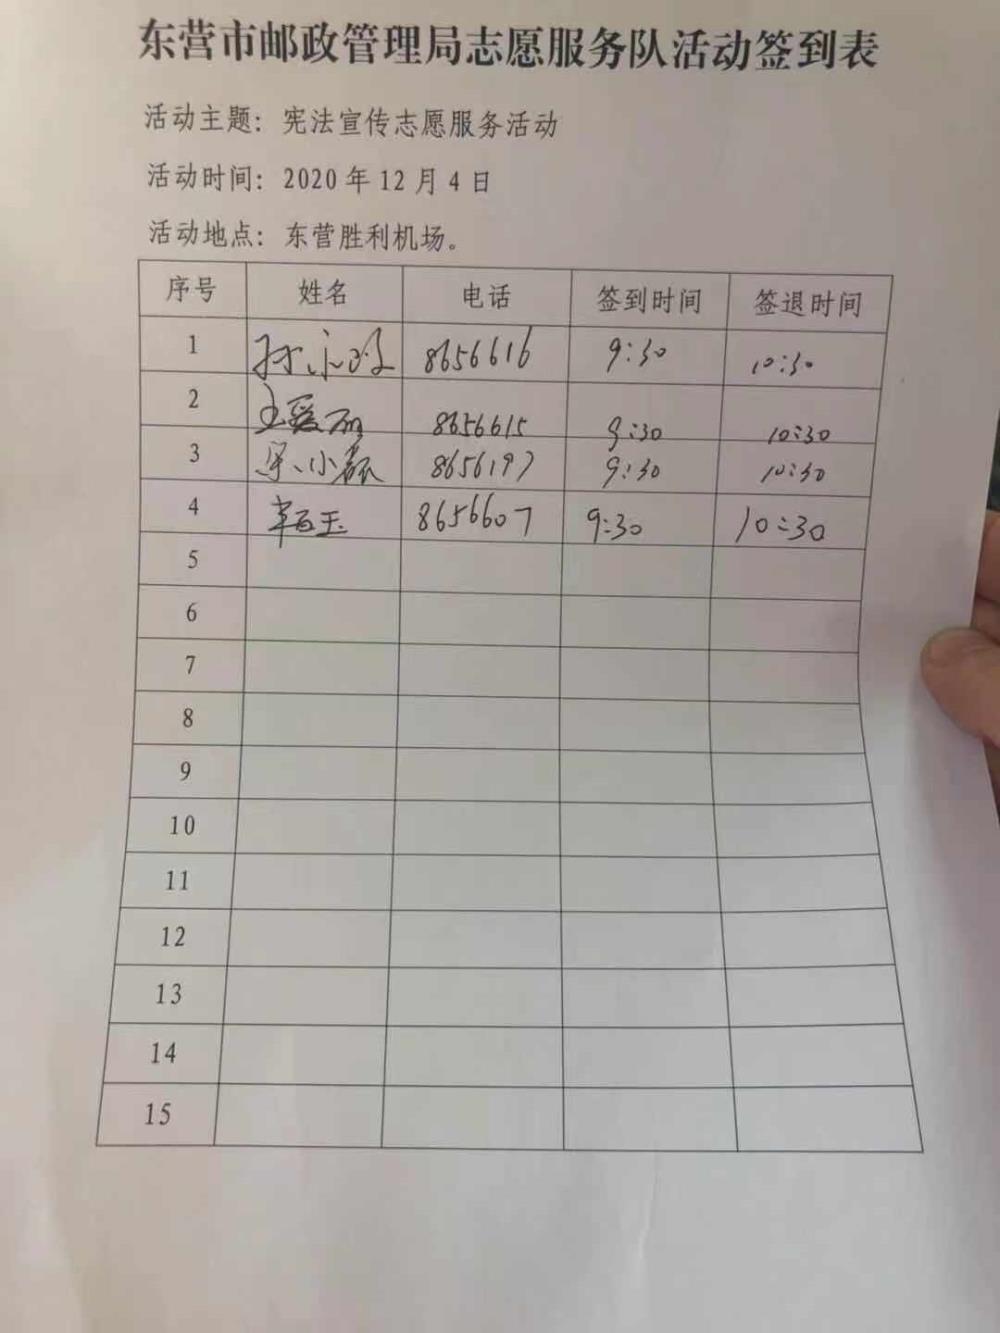 东营市邮政管理局志愿服务队活动签到表
活动主题：宪法宣传志愿服务活动
活动时间：2020年12月4日
活动地点：东营胜利机场。
序号 姓名 电话 签到时间 签退时间
1 8656616 9:30 10:30
2 8656615 9:30 10:30
3 小磊 8656197 9:30 10:30
4 玉 8656607 9:30 10:30
5
6
7
8
9
10
11
12
13
14
15